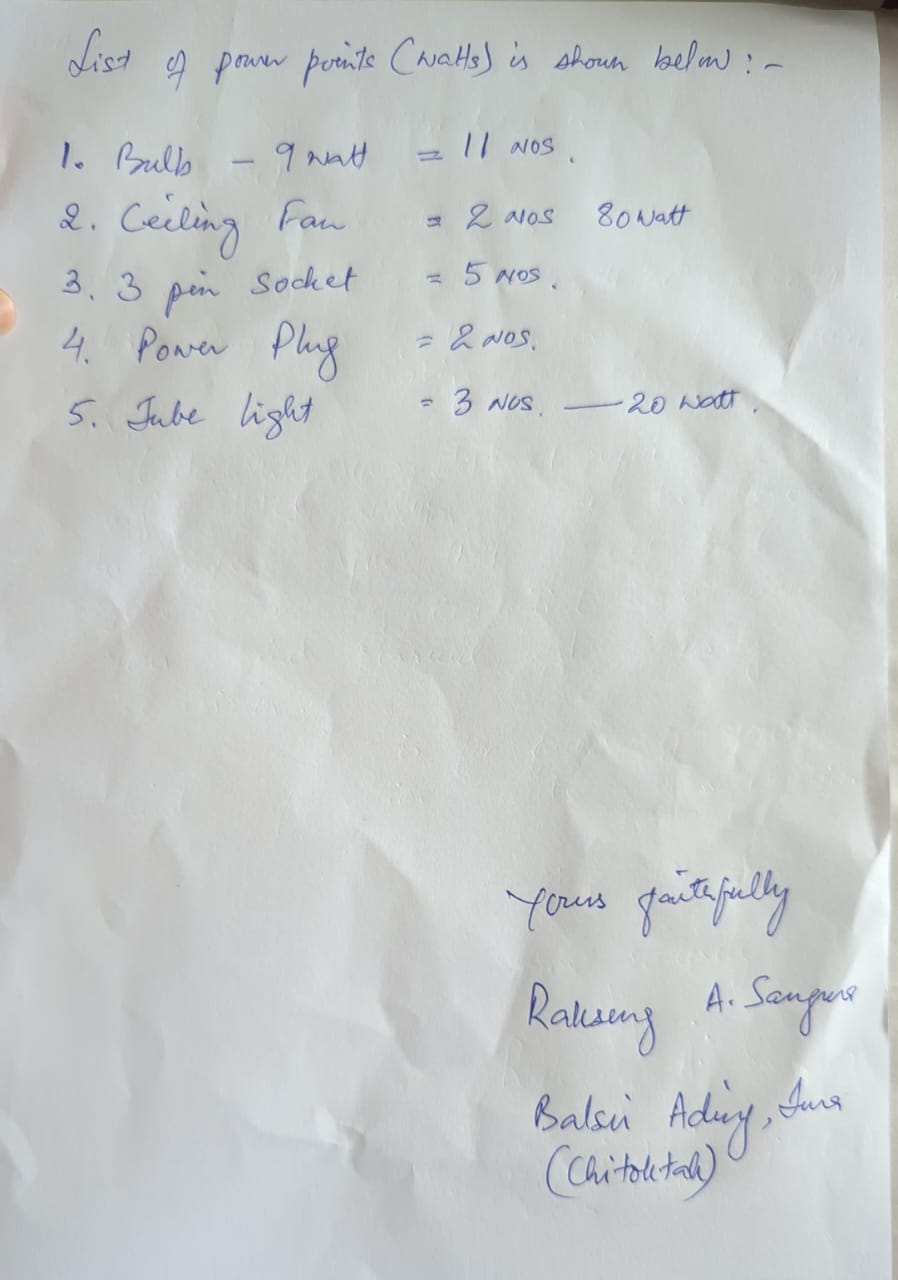 List of power points (watts) is shown below:-
1. Bulb - 9 watt = 11 NOS.
2. Ceiling Fan = 2 NOS 80 watt
3. 3 pin socket = 5 NOS.
4. Power Plug = 2 NOS.
5. Tube light = 3 NOS. — 20 watt.
Yours faithfully
Rakseng A. Sangma
Balsri Ading, Tura
(Chitoktak)